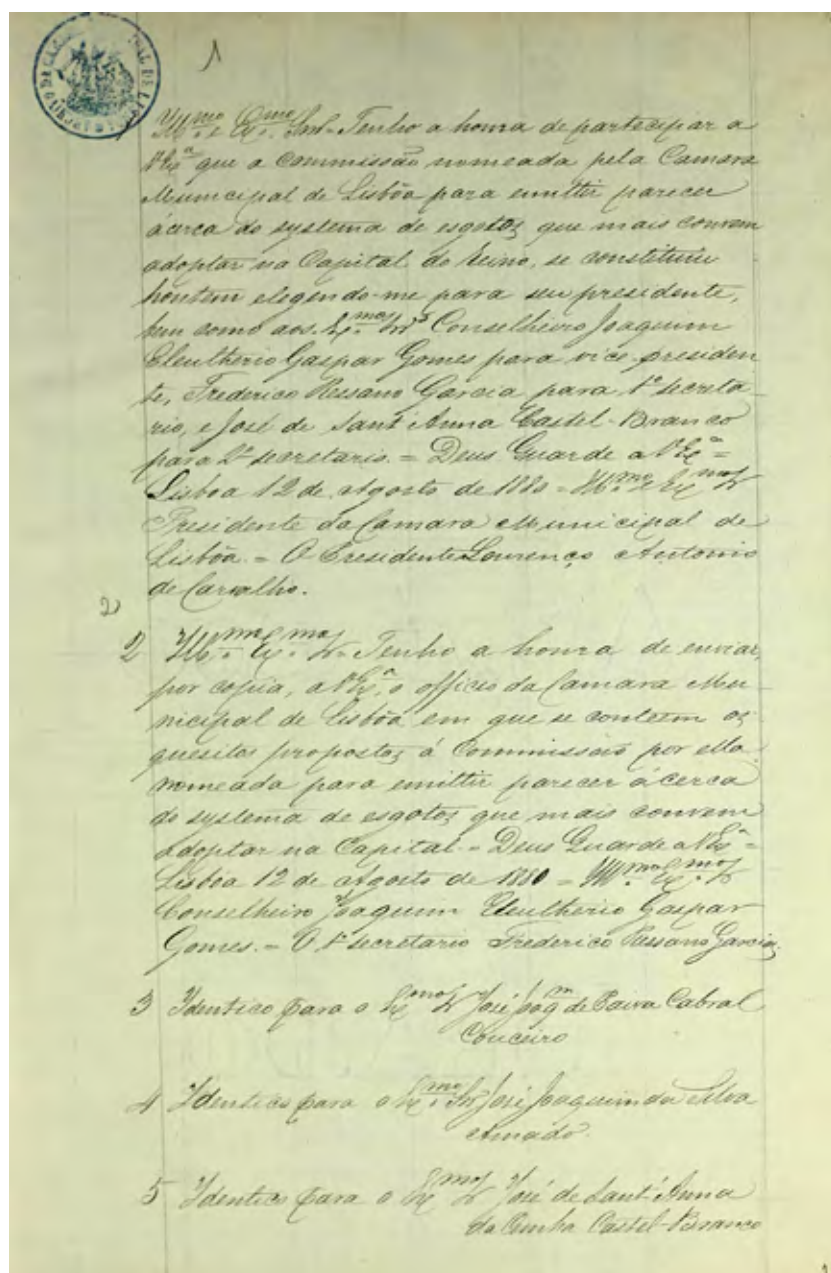 1
Ill.mo e Ex.mo Snr. Tenho a honra de participar a
V. Ex.a que a Commissão nomeada pela Camara
Municipal de Lisbôa para emittir parecer
ácerca do systema de esgotos que mais convem
adoptar na Capital do Reino, se constituiu
hontem elegendo-me para seu presidente,
bem como aos Ex.mos Snrs Conselheiro Joaquim
Eleutherio Gaspar Gomes para vice-presiden
te, Frederico Ressano Garcia para 1º secreta-
rio, e José de Sant'Anna Castel-Branco
para 2º secretario. = Deus Guarde a V. Ex.a =
Lisboa 12 de Agosto de 1880 = Ill.mo e Ex.mo Sr
Presidente da Camara Municipal de
Lisbôa. = O Presidente Lourenço Antonio
de Carvalho.
2)
2 Ill.mo Ex.mo Sr = Tenho a honra de enviar,
por copia, a V. Ex.a, o officio da Camara Mu-
nicipal de Lisbôa em que se conteem os
quesitos propostos á Commissão por ella
nomeada para emittir parecer ácerca
do systema de esgotos que mais convem
adoptar na Capital = Deus Guarde a V. Ex.a =
Lisboa 12 de Agosto de 1880 = Ill.mo Ex.mo Sr
Conselheiro Joaquim Eleutherio Gaspar
Gomes. = O 1º secretario Frederico Ressano Garcia.
3 Identico para o Ex.mo Sr José Joaq.m de Paiva Cabral
Couceiro
4 Identico para o Ex.mo Snr José Joaquim da Silva
Amado.
5 Identico para o Ex.mo Sr José de Sant'Anna
da Cunha Castel-Branco